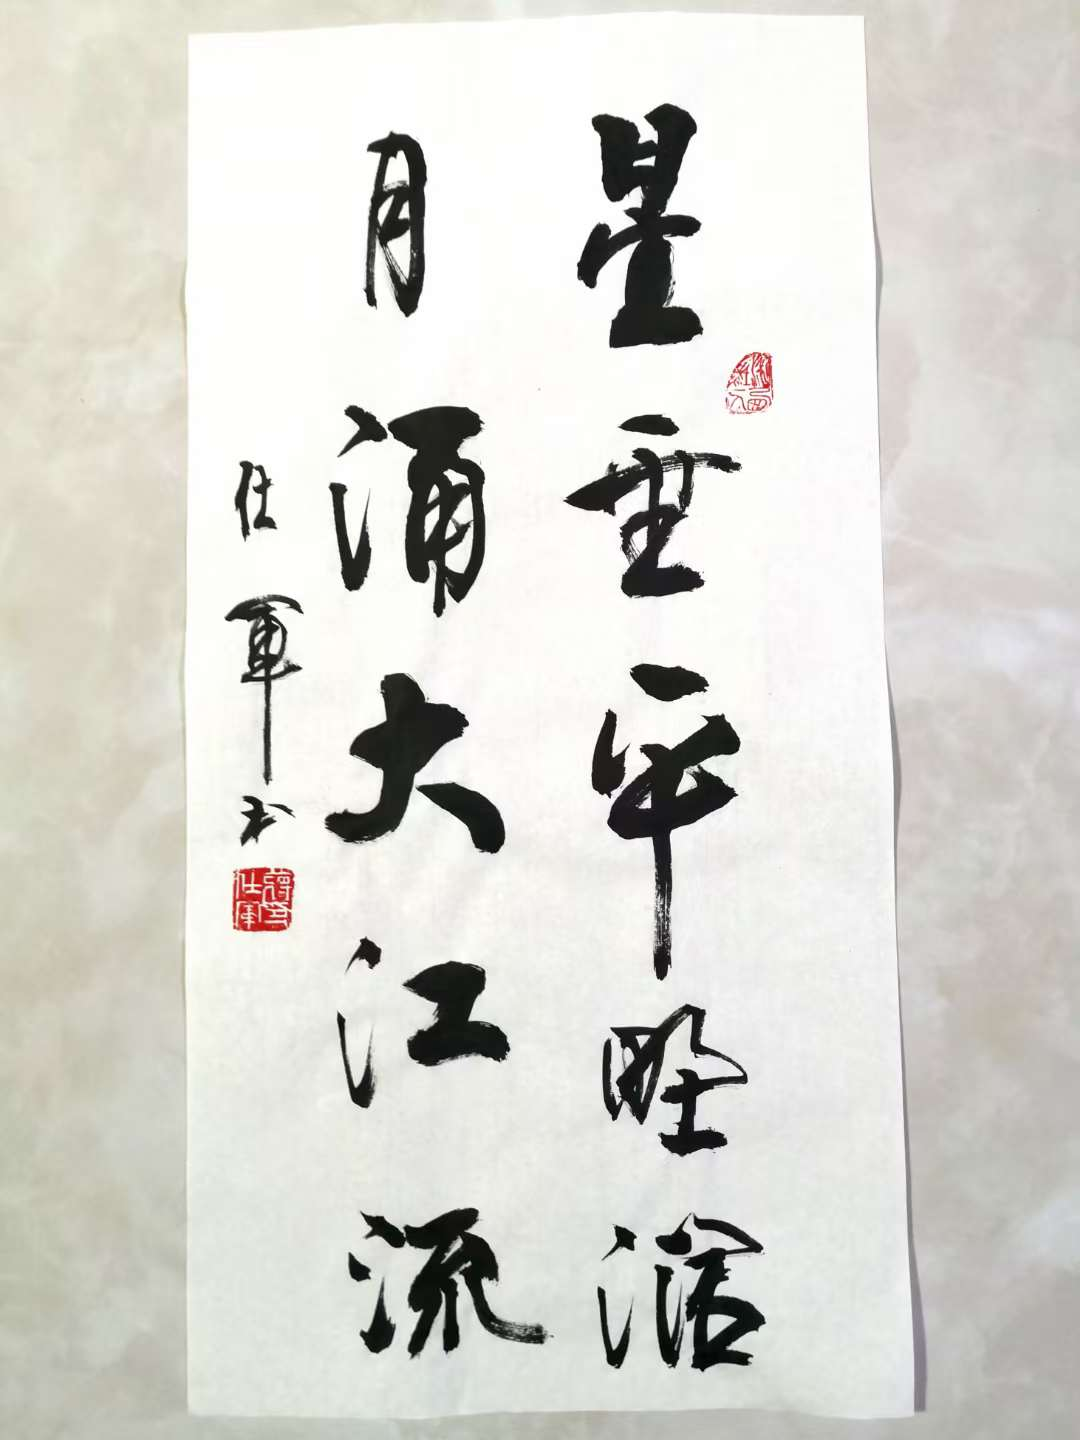 星垂平野阔
月涌大江流
仕軍书